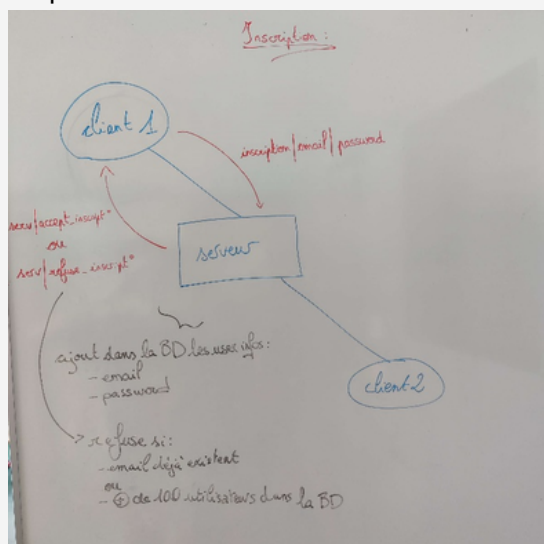 Inscription :
client 1
inscription/email/password
serv/accept_inscript°
ou
serv/refuse_inscript°
serveur
ajout dans la BD les users infos :
- email
- password
client 2
refuse si :
- email déjà existent
ou
- ⊕ de 100 utilisateurs dans la BD